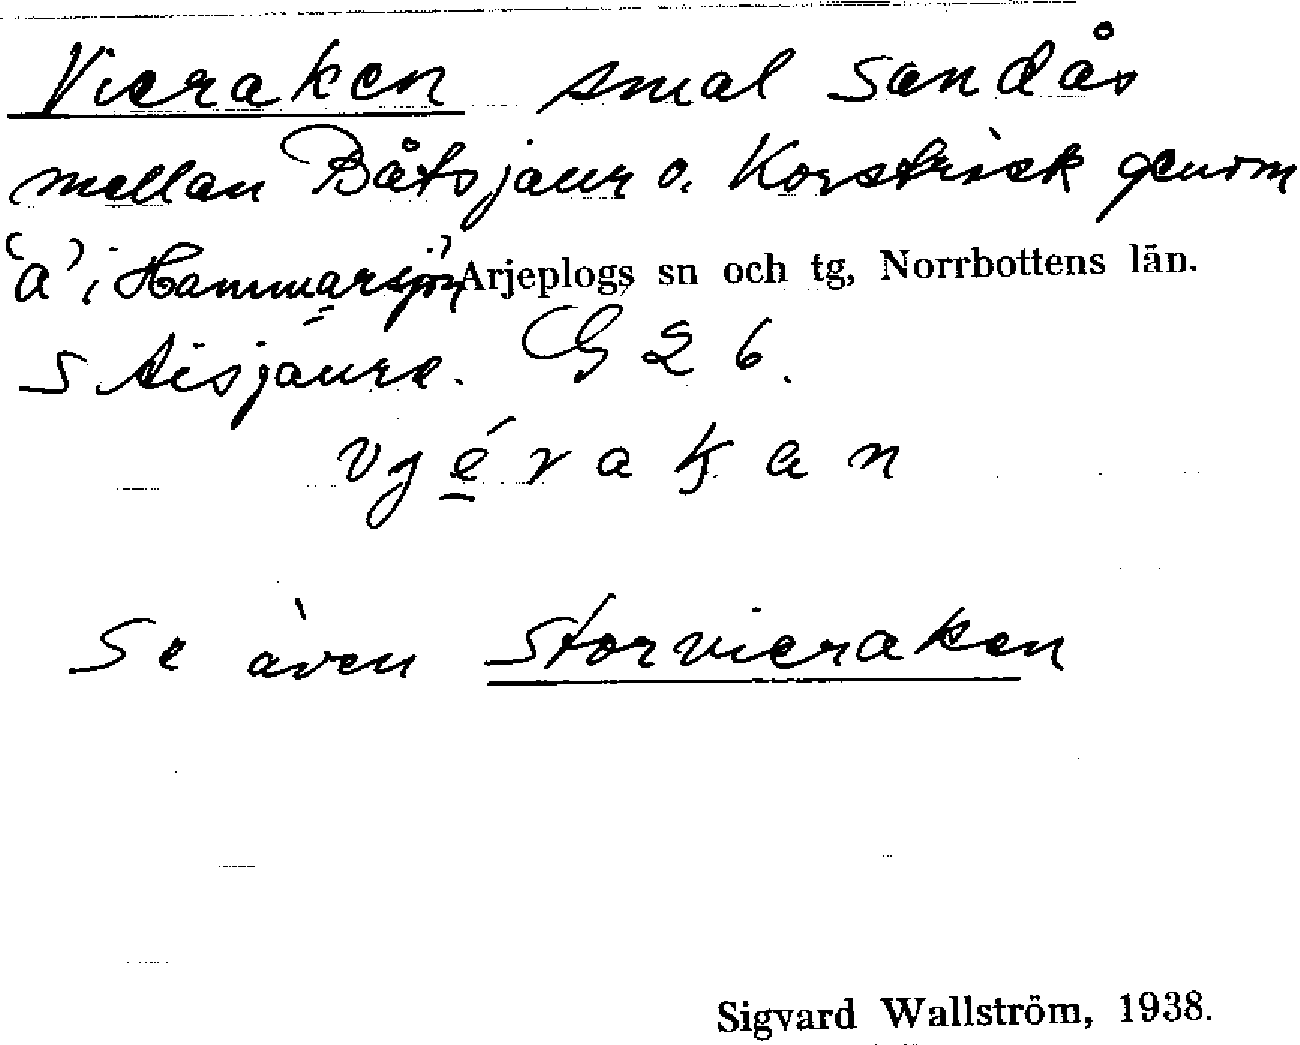 Vieraken smal sandås
mellan Båtsjaur o. Korsträsk genom
"a" i Hammarsjön Arjeplogs sn och tg, Norrbottens län.
S Aisjaure. G 2 6.
vyérakan
Se även Storvieraken
Sigvard Wallström, 1938.